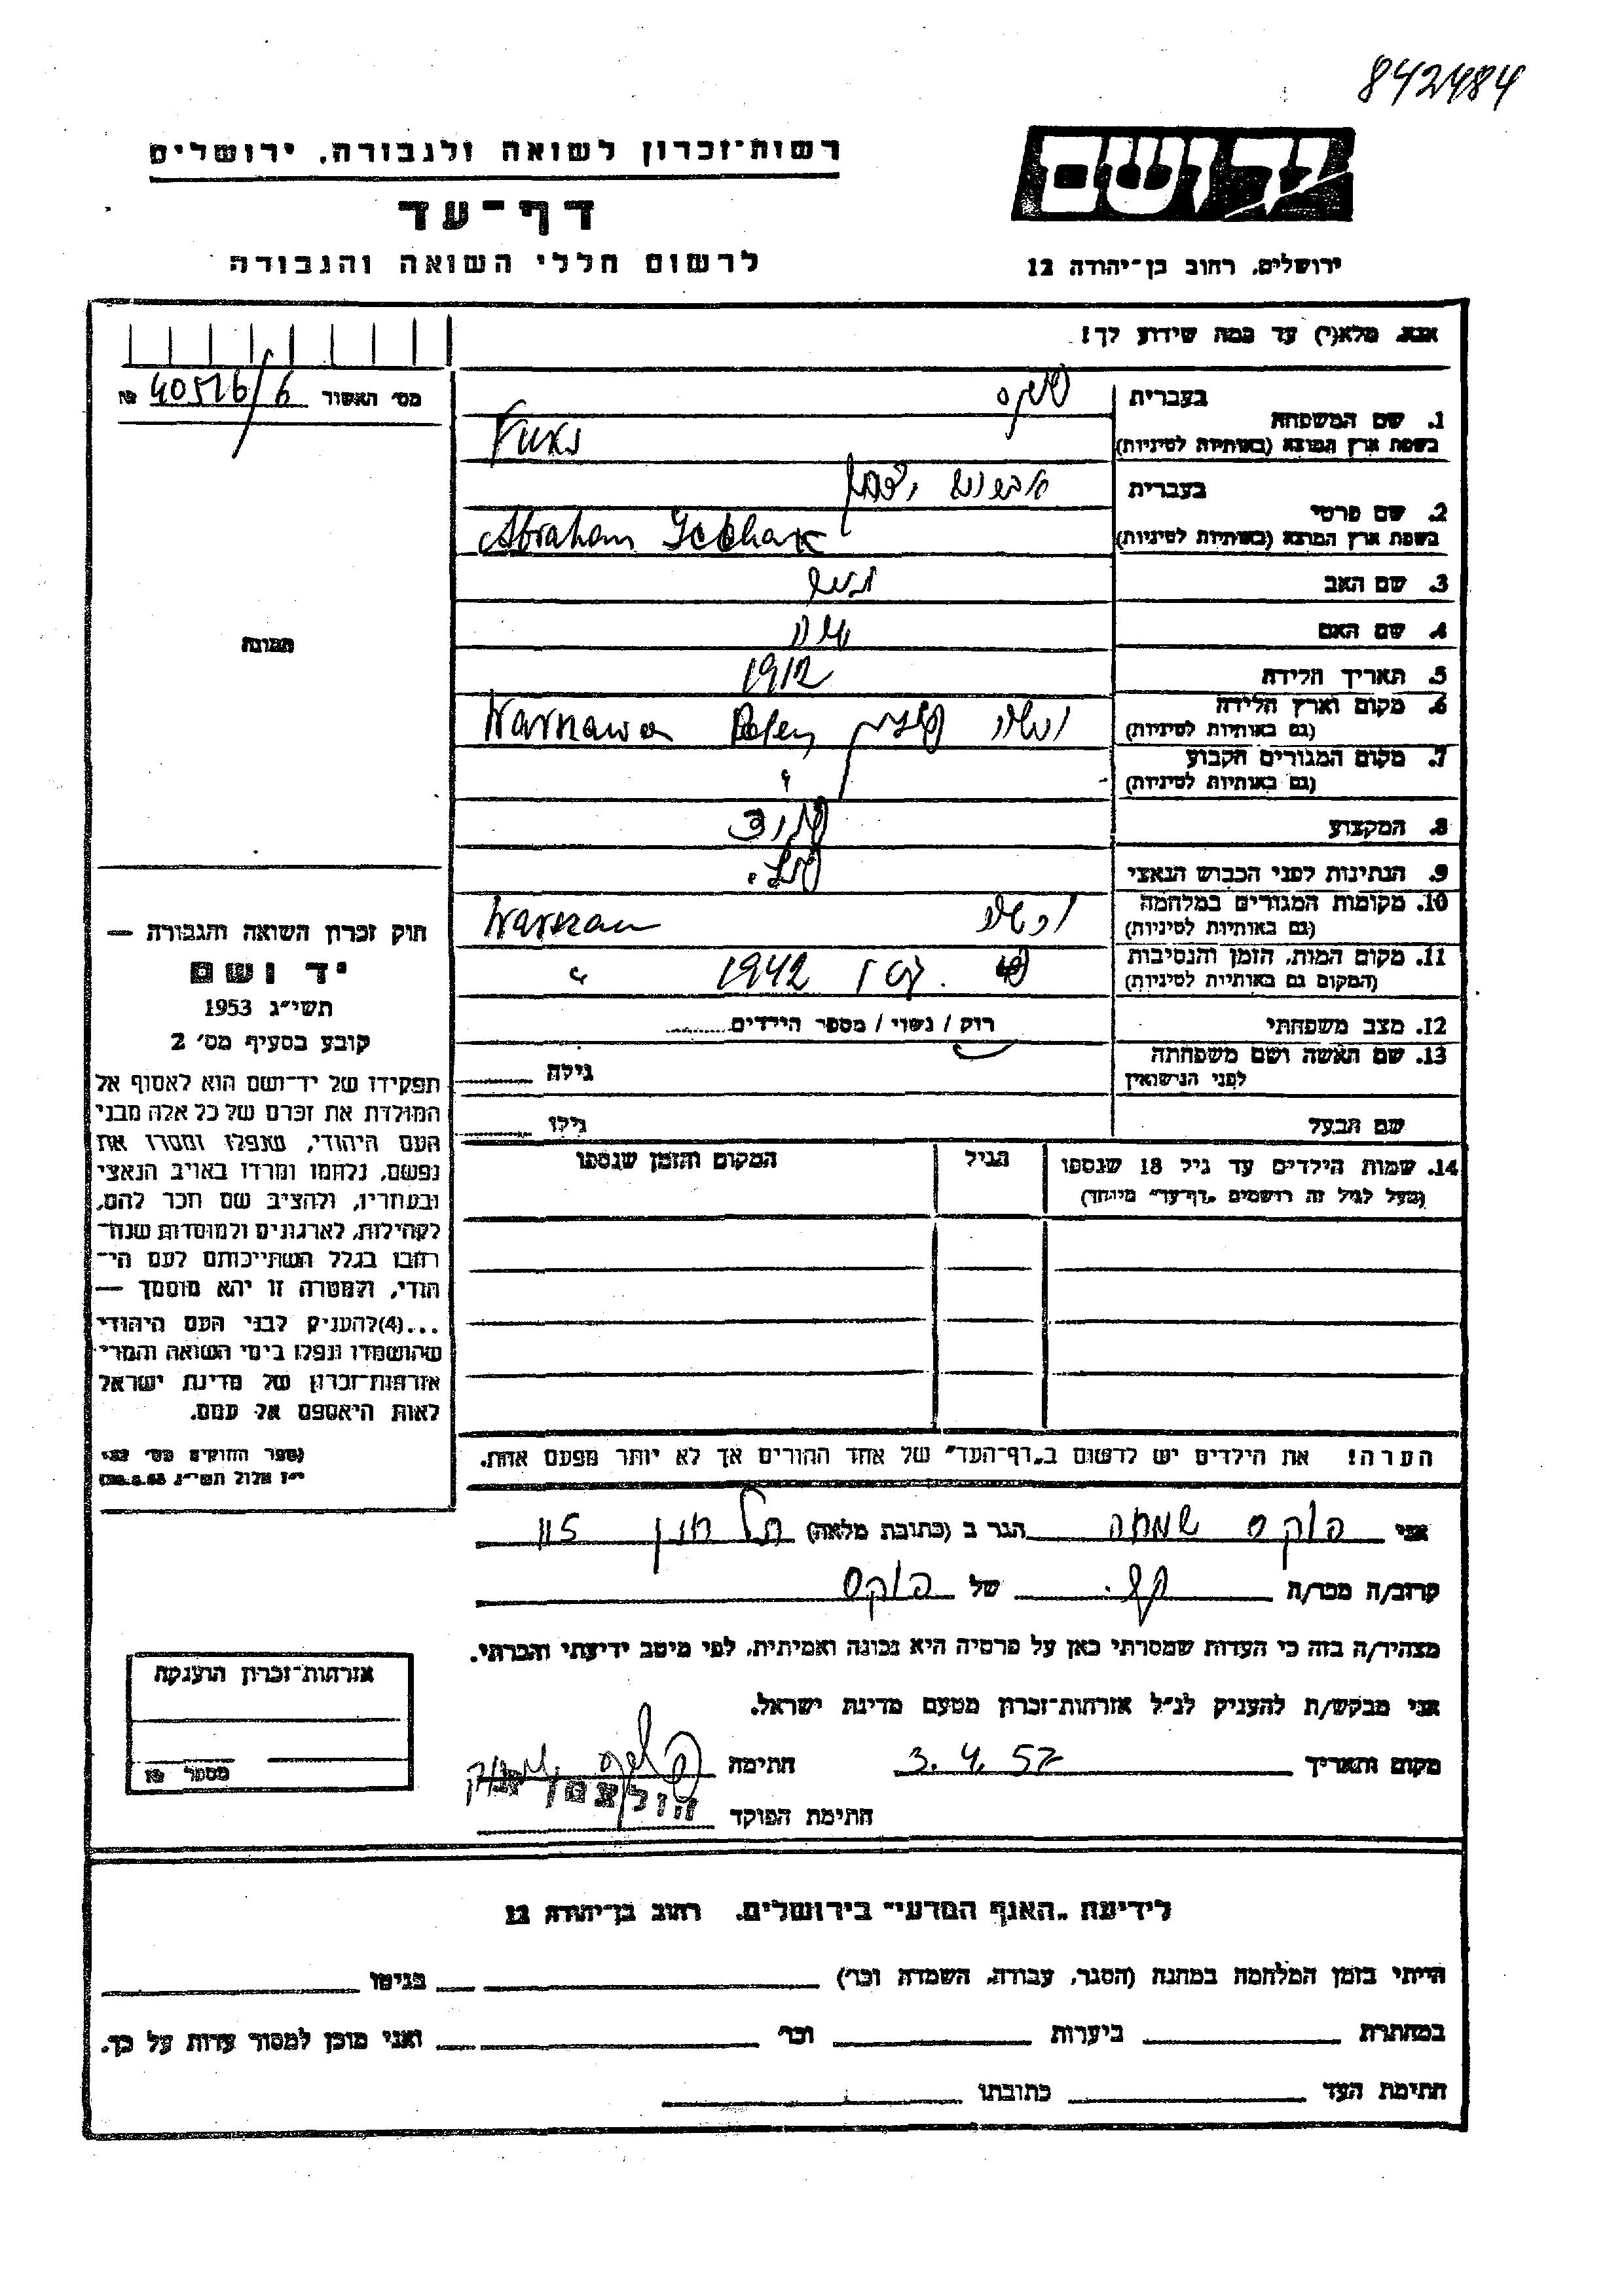 842484
יד ושם
רשות־זכרון לשואה ולגבורה, ירושלים
דף־עד
לרשום חללי השואה והגבורה
ירושלים, רחוב בן־יהודה 12
אנא, מלא(י) עד כמה שידוע לך!
מס׳ האשור 40516/6 №
1. שם המשפחה
בעברית פוקס
בשפת ארץ המוצא (באותיות לטיניות)
2. שם פרטי
בעברית יצחק
בשפת ארץ המוצא (באותיות לטיניות) Abraham
3. שם האב
4. שם האם
תמונה
5. תאריך הלידה 1912
6. מקום וארץ הלידה
(גם באותיות לטיניות) Warszawa Polen
7. מקום המגורים הקבוע
(גם באותיות לטיניות) "
8. המקצוע
9. הנתינות לפני הכבוש הנאצי פול.
10. מקומות המגורים במלחמה
(גם באותיות לטיניות) Warszau
11. מקום המות, הזמן והנסיבות 1942 "
(המקום גם באותיות לטיניות)
12. מצב משפחתי רוק / נשוי / מספר הילדים
13. שם האשה ושם משפחתה
לפני הנישואין גילה
שם הבעל גילו
חוק זכרון השואה והגבורה —
יד ושם
תשי״ג 1953
קובע בסעיף מס׳ 2
תפקידו של יד־ושם הוא לאסוף אל
המולדת את זכרם של כל אלה מבני
העם היהודי, שנפלו ומסרו את
נפשם, נלחמו ומרדו באויב הנאצי
ובעוזריו, ולהציב שם וזכר להם,
לקהילות, לארגונים ולמוסדות שנח־
רבו בגלל השתייכותם לעם הי־
הודי, ולמטרה זו יהא מוסמך —
...(4)להעניק לבני העם היהודי
שהושמדו ונפלו בימי השואה והמרי
אזרחות־זכרון של מדינת ישראל
לאות היאספם אל עמם.
(ספר החוקים מס׳ 132
י״ז אלול תשי״ג
14. שמות הילדים עד גיל 18 שנספו הגיל המקום והזמן שנספו
(מעל לגיל זה רושמים „דף־עד״ מיוחד)
הערה! את הילדים יש לרשום ב„דף־העד״ של אחד ההורים אך לא יותר מפעם אחת.
אני פוקס שמחה הגר ב (כתובת מלאה) תל חנן 115
קרוב/ה מכר/ה של פוקס
מצהיר/ה בזה כי העדות שמסרתי כאן על פרטיה היא נכונה ואמיתית, לפי מיטב ידיעתי והכרתי.
אני מבקש/ת להעניק לנ״ל אזרחות־זכרון מטעם מדינת ישראל.
מקום ותאריך 3.4.57 חתימה
חתימת הפוקד
אזרחות־זכרון הוענקה
מספר №
לידיעת „האגף המדעי״ בירושלים, רחוב בן־יהודה 12
הייתי בזמן המלחמה במחנה (הסגר, עבודה, השמדה וכו׳) בגיטו
במחתרת ביערות וכו׳ ואני מוכן למסור עדות על כך.
חתימת העד כתובתו